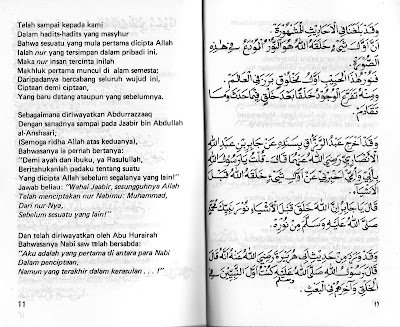 Telah sampai kepada kami
Dalam hadits-hadits yang masyhur
Bahwa sesuatu yang mula pertama dicipta Allah
Ialah nur yang tersimpan dalam pribadi ini.
Maka nur insan tercinta inilah
Makhluk pertama muncul di alam semesta:
Daripadanya bercabang seluruh wujud ini
Ciptaan demi ciptaan,
Yang baru datang ataupun yang sebelumnya.
Sebagaimana diriwayatkan Abdurrazzaaq
Dengan sanadnya sampai pada Jaabir bin Abdullah
al-Anshaari;
(Semoga ridha Allah atas keduanya),
Bahwasanya ia pernah bertanya:
"Demi ayah dan ibuku, ya Rasulullah,
Beritahukanlah padaku tentang suatu
Yang dicipta Allah sebelum segalanya yang lain!"
Jawab beliau: "Wahai Jaabir, sesungguhnya Allah
Telah menciptakan nur Nabimu: Muhammad,
Dari nur-Nya,
Sebelum sesuatu yang lain!"
Dan telah diriwayatkan oleh Abu Hurairah
Bahwasanya Nabi saw telah bersabda:
"Aku adalah yang pertama di antara para Nabi
Dalam penciptaan,
Namun yang terakhir dalam kerasulan . . . !"
11
وَقَدْ بَلَغَنَا فِي الْأَحَادِيثِ الْمَشْهُورَةِ
أَنَّ أَوَّلَ شَيْءٍ خَلَقَهُ اللهُ هُوَ النُّورُ الْمُودَعُ فِي هٰذِهِ
الصُّورَةِ.
فَنُورُ هٰذَا الْحَبِيبِ أَوَّلُ مَخْلُوقٍ بَرَزَ فِي الْعَالَمِ.
وَمِنْهُ تَفَرَّعَ الْوُجُودُ خَلْقًا بَعْدَ خَلْقٍ فِيمَا حَدَثَ وَمَا
تَقَادَمَ.
وَقَدْ أَخْرَجَ عَبْدُ الرَّزَّاقِ بِسَنَدِهِ عَنْ جَابِرِ بْنِ عَبْدِ اللهِ
الْأَنْصَارِيِّ رَضِيَ اللهُ عَنْهُمَا قَالَ. قُلْتُ يَا رَسُولَ اللهِ
بِأَبِي وَأُمِّي أَخْبِرْنِي عَنْ أَوَّلِ شَيْءٍ خَلَقَهُ اللهُ قَبْلَ
الْأَشْيَاءِ.
قَالَ يَا جَابِرُ إِنَّ اللهَ خَلَقَ قَبْلَ الْأَشْيَاءِ نُورَ نَبِيِّكَ مُحَمَّدٍ
صَلَّى اللهُ عَلَيْهِ وَسَلَّمَ مِنْ نُورِهِ.
وَقَدْ وَرَدَ مِنْ حَدِيثِ أَبِي هُرَيْرَةَ رَضِيَ اللهُ عَنْهُ أَنَّهُ قَالَ
قَالَ رَسُولُ اللهِ صَلَّى اللهُ عَلَيْهِ وَسَلَّمَ كُنْتُ أَوَّلَ النَّبِيِّينَ فِي
الْخَلْقِ وَآخِرَهُمْ فِي الْبَعْثِ.